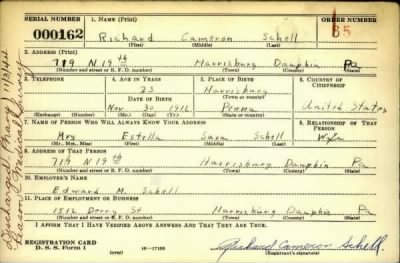 SERIAL NUMBER
1. NAME (Print)
ORDER NUMBER
000162
Richard Cameron Schell
85
(First) (Middle) (Last)
2. ADDRESS (Print)
719 N 19th Harrisburg Dauphin Pa
(Number and street or R. F. D. number) (Town) (County) (State)
3. TELEPHONE
4. AGE IN YEARS
5. PLACE OF BIRTH
6. COUNTRY OF CITIZENSHIP
23
Harrisburg
DATE OF BIRTH
(Town or county)
Nov 30 1916
Penna
United States
(Exchange) (No.)
(Mo.) (Day) (Yr.)
(State or country)
7. NAME OF PERSON WHO WILL ALWAYS KNOW YOUR ADDRESS
8. RELATIONSHIP OF THAT PERSON
Mrs Estella Sara Schell
Wife
(Mr., Mrs., Miss) (First) (Middle) (Last)
9. ADDRESS OF THAT PERSON
719 N 19th Harrisburg Dauphin Pa
(Number and street or R. F. D. number) (Town) (County) (State)
10. EMPLOYER'S NAME
Edward M. Schell
11. PLACE OF EMPLOYMENT OR BUSINESS
1512 Derry St Harrisburg Dauphin Pa
(Number and street or R. F. D. number) (Town) (County) (State)
I AFFIRM THAT I HAVE VERIFIED ABOVE ANSWERS AND THAT THEY ARE TRUE.
REGISTRATION CARD
D. S. S. Form 1
(over)
16—17105
Richard Cameron Schell
(Registrant's signature)